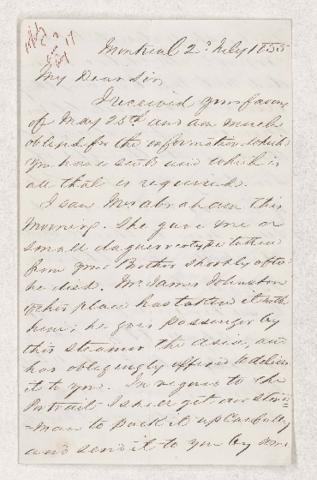 Montreal 2d July 1855
My Dear Sir,
I received your favour
of May 25th and am much
obliged for the information which
you have sent and which is
all that is required.
I saw Mrs Abraham this
Morning. She gave me a
small daguerreotype taken
from your Brother shortly after
he died. Mr. James Johnston
of this place has taken it with
him; he goes passenger by
this steamer the Asia, and
has obligingly offered to deliver
it to you. In regard to the
Portrait I shall get our
man to pack it up Carefully
and send it to you by some